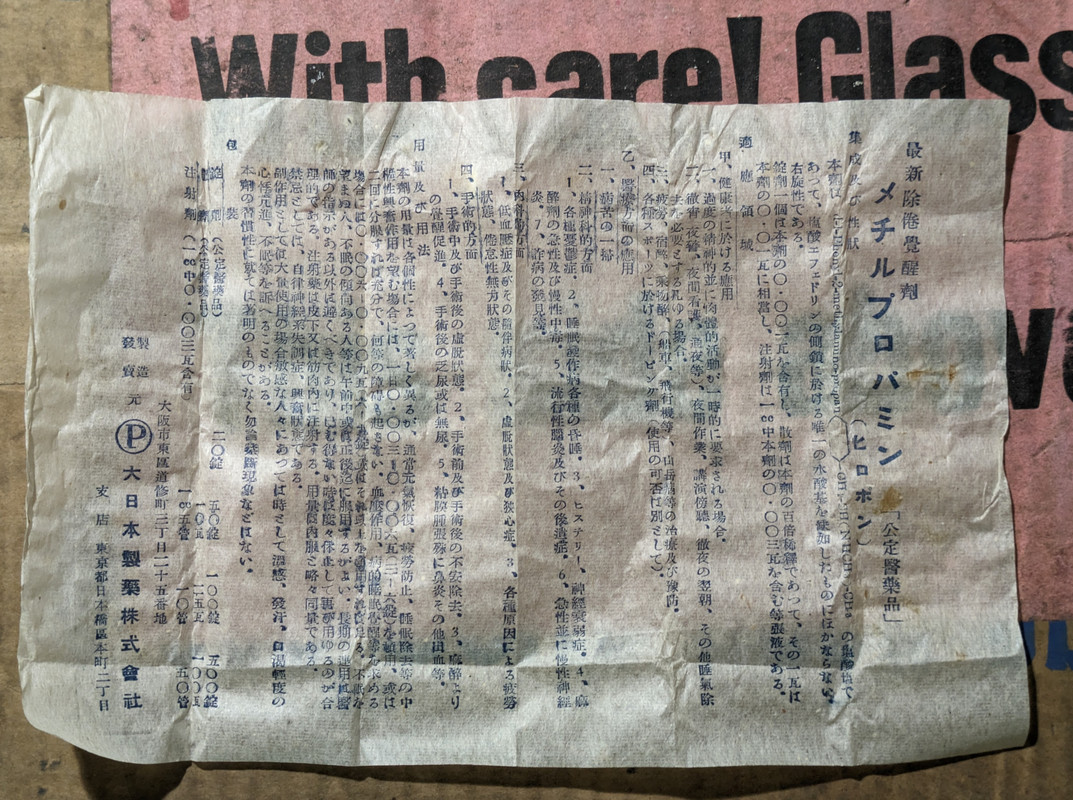 With care! Glass
最新除倦覺醒劑
メチルプロパミン「公定醫藥品」
(ヒロポン)
集成及び性狀
本劑は の鹽酸鹽で
あつて、鹽酸エフェドリンの側鎖に於ける唯一の水酸基を ものにほかならない。
右旋性である。
錠劑一個は本劑の〇・〇〇一瓦を含有し、散劑は本劑の百倍稀釋であつて、その一瓦は
本劑の〇・〇一瓦に相當し、注射劑は一cc中本劑の〇・〇〇三瓦を含む等張液である。
適應領域
甲、健康者に於ける應用
一、過度の精神的並に肉體的活動が一時的に要求される場合。
二、徹宵、夜警、夜間看護、通夜等)、夜間作業、講演傍聽、徹夜の翌朝、その他睡氣除
去を必要とする凡ゆる場合。
三、疲勞、宿醉、乘物醉(船車、飛行機等)、山岳病等の治療及び豫防。
四、各種スポーツに於けるドーピング劑(使用の可否は別として)。
乙、醫療方面の應用
一、病苦の一掃
二、精神科的方面
1、各種憂鬱症。2、睡眠 病各種の昏睡。3、ヒステリー、神經衰弱症。4、麻
醉劑の急性及び慢性中毒。5、流行性腦炎及びその後遺症。6、急性並に慢性神經
炎。7、詐病の發見等。
三、内科的方面
1、低血壓症及びその隨伴病狀。2、虛脫狀態及び狹心症。3、各種原因による疲勞
狀態、倦怠性無力狀態。
四、手術的方面
1、手術中及び手術後の虛脫狀態。2、手術前及び手術後の不安除去。3、麻醉より
の覺醒促進。4、手術後の乏尿或は無尿。5、粘膜腫脹殊に鼻炎その他出血等。
用量及び用法
本劑の用量は各個性によつて著しく異るが、通常元氣恢復、疲勞防止、睡眠除去等の中
樞性興奮作用を望む場合には、一日〇・〇〇三―〇・〇〇六瓦(三―六錠)を頓用、或は
二回に分服すれば充分で、何等の障碍も起さない。血壓作用、病的睡眠 等を求める
場合には
望まぬ人、不眠の傾向ある人等は午前中或は正午後迄に服用するがよい。長期の連用は醫
師の指示がある以外は避くべきであり、已む得ない時は度々休止して再び用ゆるのが合
理的である。注射藥は皮下又は筋肉内に注射する。用量は内服と略々同量である。
禁忌としては、自律神經系失調症、興奮狀態である。
副作用としては大量使用の場合敏感な人々にあつては時として溫感、發汗、口渴輕度の
心悸亢進、不眠等を訴へることがある。
本劑の習慣性に就ては著明のものでなく勿論禁斷現象などはない。
包裝
錠劑(公定醫藥品) 二〇錠 五〇錠 一〇〇錠 五〇〇錠
散劑(公定醫藥品) 一〇瓦 二五瓦 一〇〇瓦
注射劑(一cc中〇・〇〇三瓦含有) 一cc五管 一〇管 五〇管
製造
發賣元
大阪市東區道修町三丁目二十五番地
P 大日本製藥株式會社
支店 東京都日本橋區本町二丁目